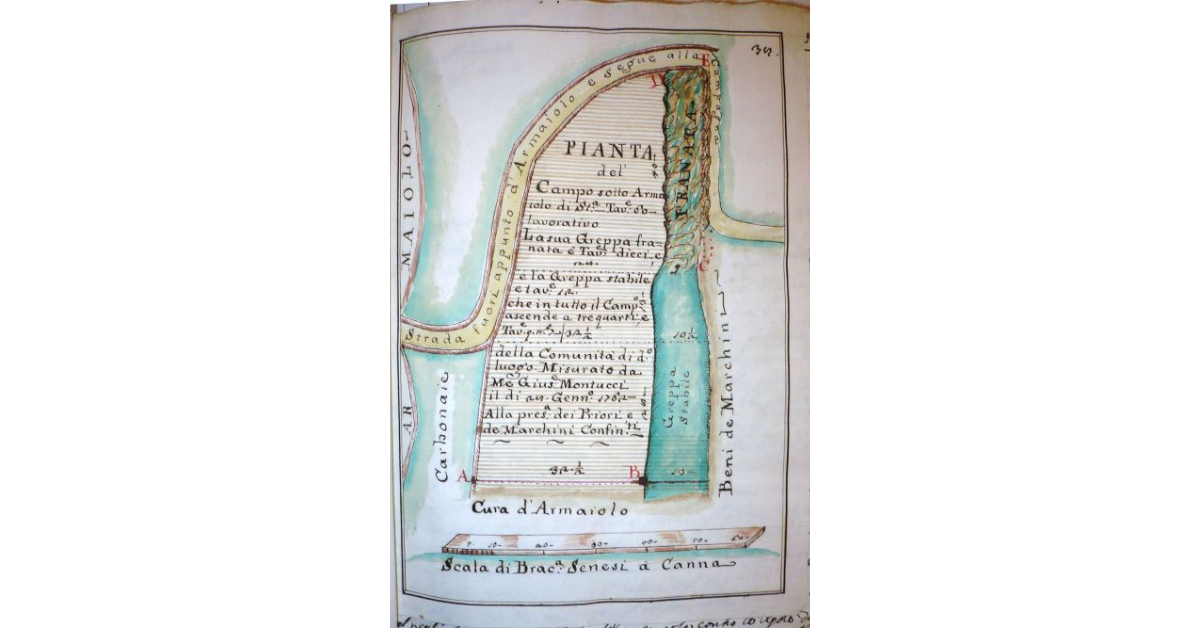 Strada fuori appunto d'Armaiolo e segue alla Campagna
D
E
PIANTA
del'
Campo sotto Arma
iolo di St.ª Tav.e
lavorativo
La sua Greppa fra-
nata è Tav.i dieci, e
e la Greppa stabile
e tav.e
che in tutto il Camp.º
ascende a trequarti, e
Tav.e
della Comunità di d.º
luogo Misurato da
Me Gius.e Montucci
il di Genn.º
Alla pres.ª dei Priori e
de Marchini Confin.ti
FRANATA
C
10½
Greppa
Stabile
AR
MAIOLO
Carbonaie
Beni de Marchini
A
32½
B
10
Cura d'Armaiolo
5 10 20 30 40 50 60
Scala di Brac.ª Senesi à Canna